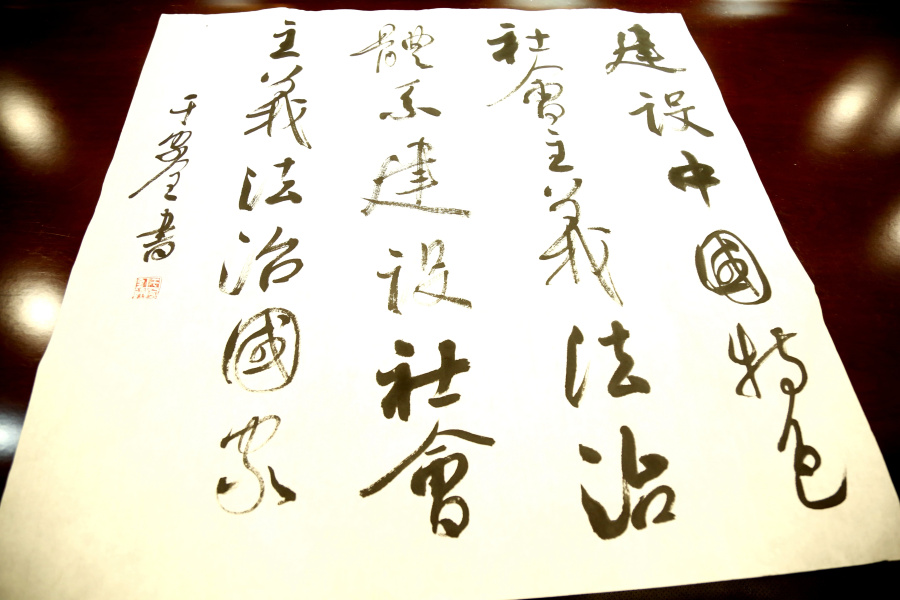 建设中國特色
社會主義法治
體系建设社會
主義法治國家
書